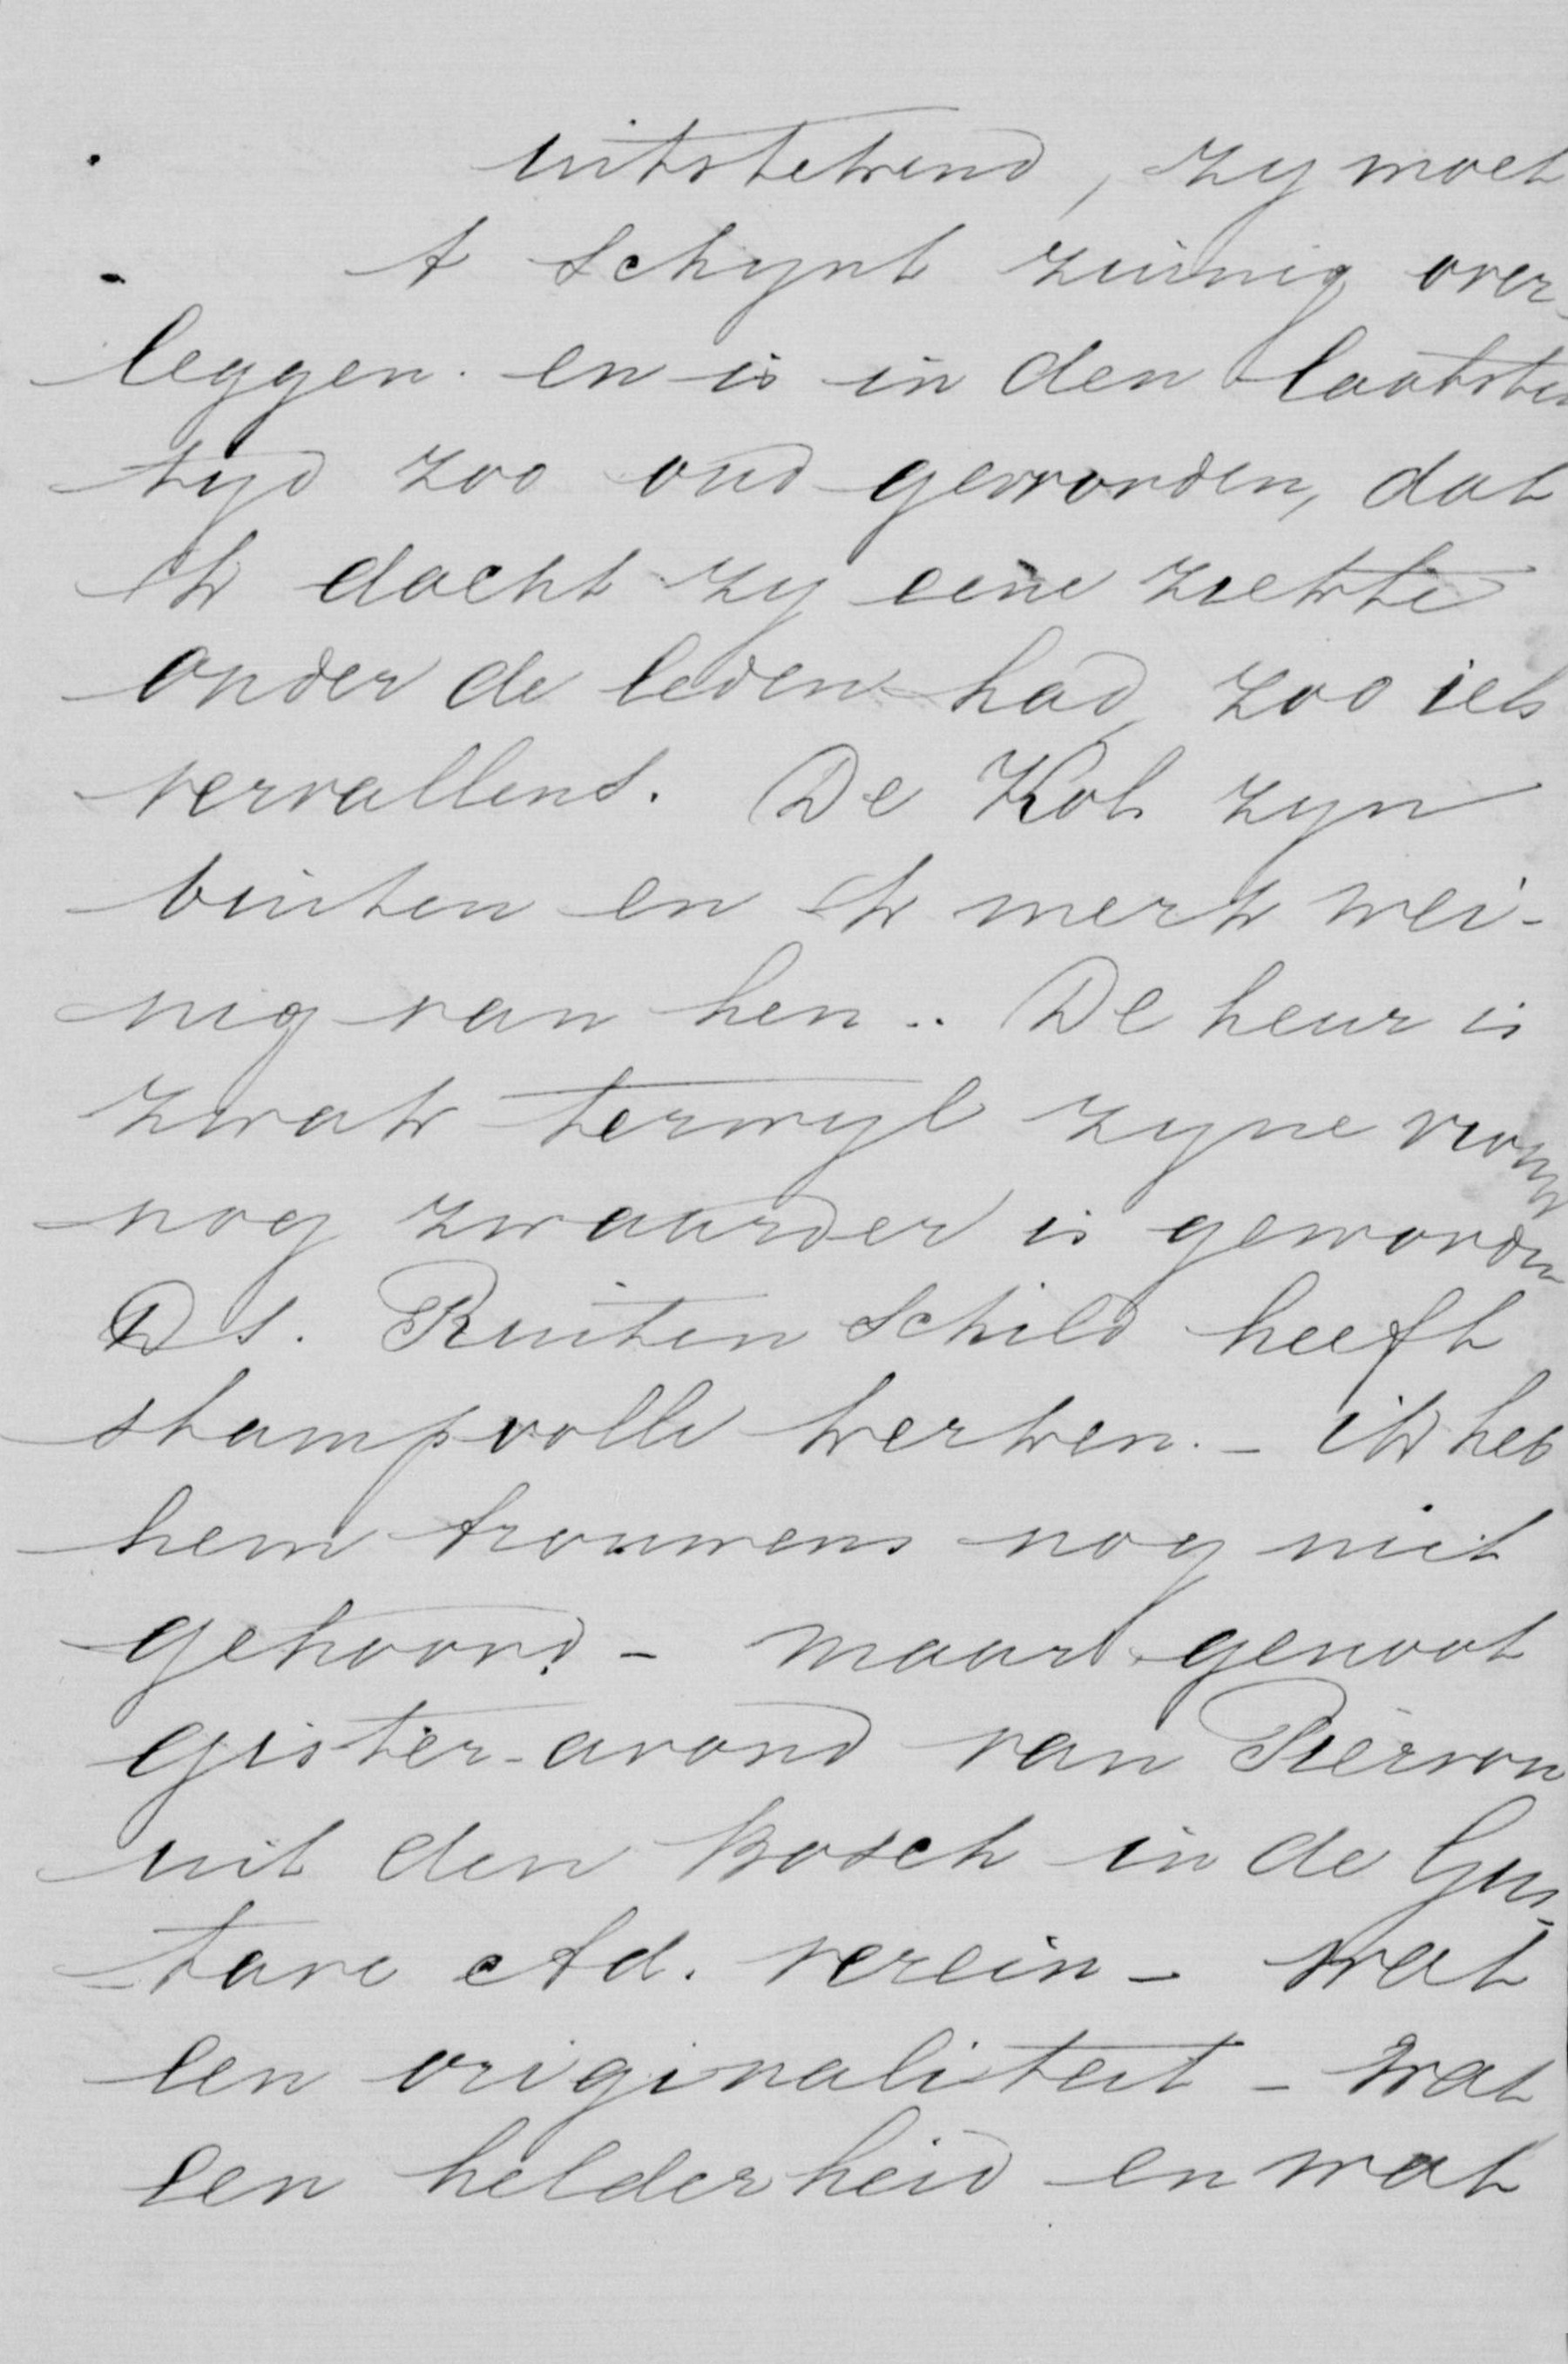 uitstekend, zy moet
t schynt zuinig over-
leggen. en is in den laatsten
tyd zoo oud geworden, dat
ik dacht zy eene ziekte
onder de leden had, zoo iets
vervallens. De Kols zyn
buiten en ik merk wei-
nig van hen.. De heur is
zwak terwyl zyne vrouw
nog zwaarder is geworden
Ds. Ruitenschild heeft
stampvolle kerken. - ik heb
hem trouwens nog niet
gehoord - maar genoot
gister-avond van Pierson
uit den Bosch in de Gus-
tave Ad. verein - wat
een origi­naliteit - wat
een helderheid en wat